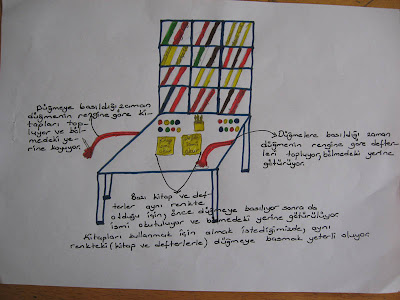 Düğmeye basıldığı zaman
düğmenin rengine göre ki-
tapları top-
luyor ve böl-
medeki ye-
rine koyuyor.
Düğmelere basıldığı zaman
düğmenin rengine göre defter-
leri topluyor, bölmedeki yerine
götürüyor.
Bazı kitap ve def-
terler aynı renkte
olduğu için, önce düğmeye basılıyor sonra da
ismi okutuluyor ve bölmedeki yerine götürülüyor.
Kitapları kullanmak için almak istediğimizde, aynı
renkteki (kitap ve defterlerle) düğmeye basmak yeterli oluyor.